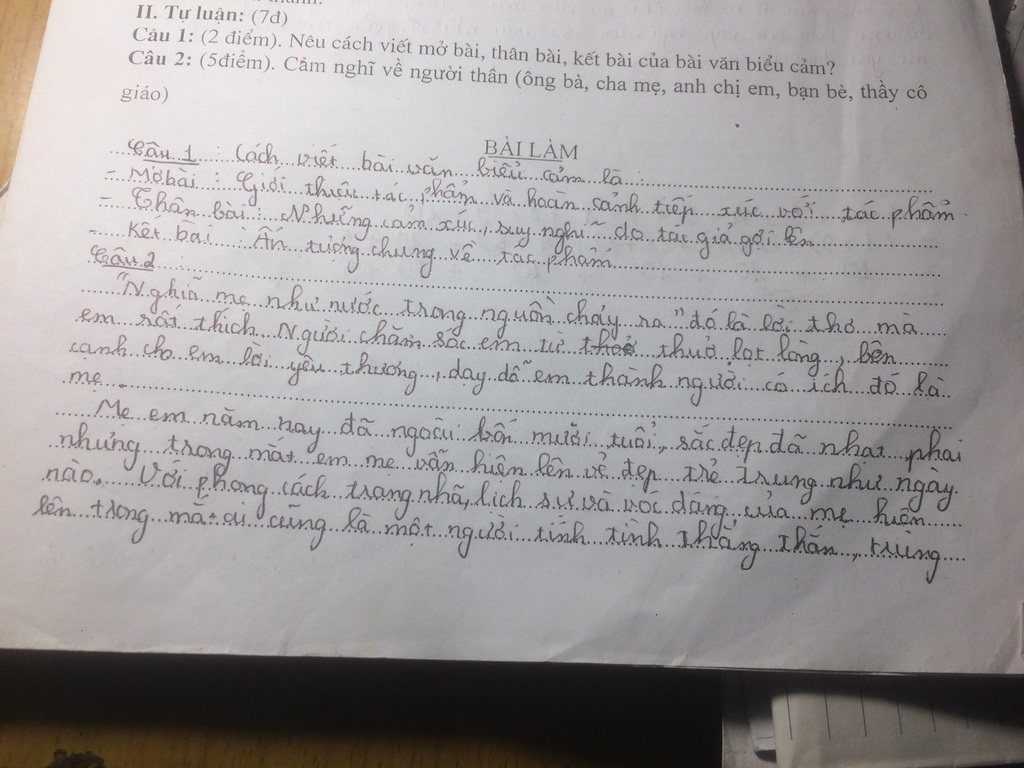 II. Tự luận: (7đ)
Câu 1: (2 điểm). Nêu cách viết mở bài, thân bài, kết bài của bài văn biểu cảm?
Câu 2: (5điểm). Cảm nghĩ về người thân (ông bà, cha mẹ, anh chị em, bạn bè, thầy cô
giáo)
BÀI LÀM
Câu 1 : Cách viết bài văn biểu cảm là :
- Mở bài : Giới thiệu tác phẩm và hoàn cảnh tiếp xúc với tác phẩm
- Thân bài : Những cảm xúc, suy nghĩ do tác giả gợi lên
- Kết bài : Ấn tượng chung về tác phẩm
Câu 2 :
"Nghĩa mẹ như nước trong nguồn chảy ra" đó là lời thơ mà
em rất thích. Người chăm sóc em từ thuở lọt lòng, bên
cạnh cho em lời yêu thương, dạy dỗ em thành người có ích đó là
mẹ.
Mẹ em năm nay đã ngoài bốn mươi tuổi, sắc đẹp đã nhạt phai
nhưng trong mắt em mẹ vẫn hiện lên vẻ đẹp trẻ trung như ngày
nào. Với phong cách trang nhã, lịch sự và vóc dáng của mẹ hiện
lên trong mắt ai cũng là một người tính tình thẳng thắn, trung